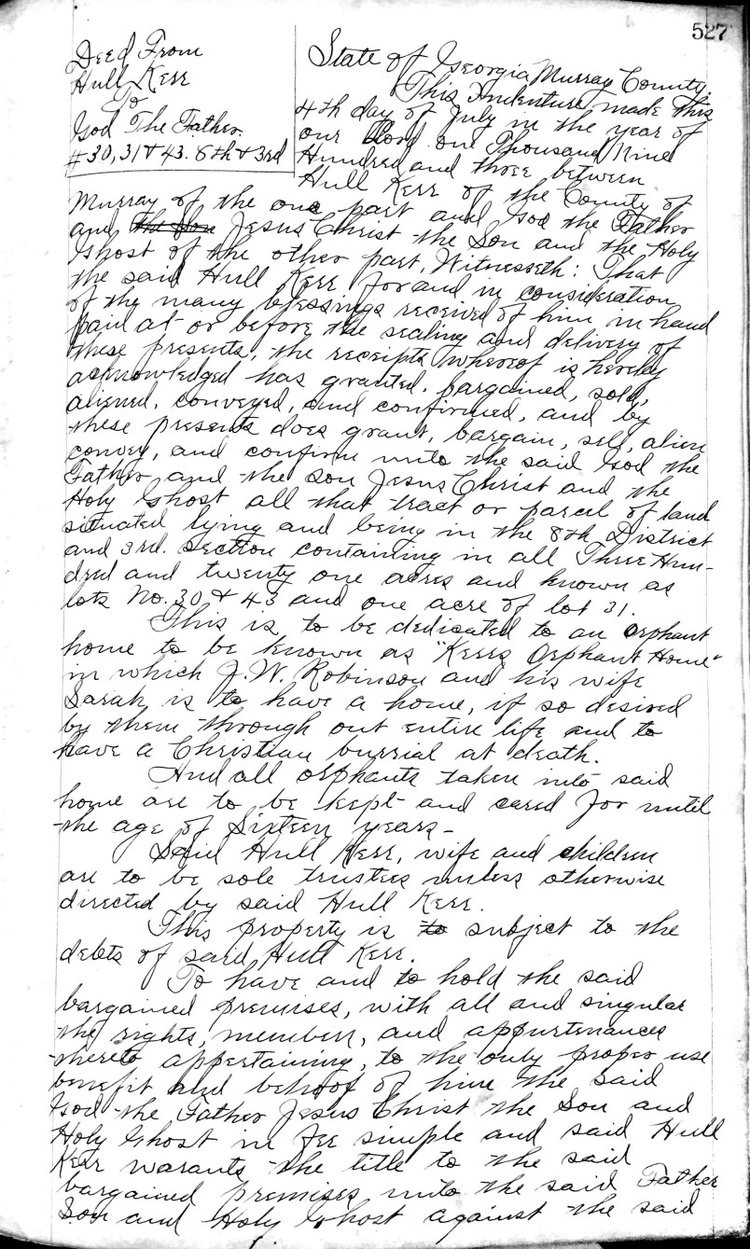 527
Deed From
Hull Kerr
To
God The Father.
# 30, 31 & 43. 8th & 3rd
State of Georgia Murray County.
This Indenture made this
4th day of July in the year of
our Lord one Thousand Nine
Hundred and three between
Hull Kerr of the County of
Murray of the one part and God the Father
and the Son Jesus Christ the Son and the Holy
Ghost of the other part, Witnesseth: That
the said Hull Kerr for and in consideration
of the many blessings received of him in hand
paid at or before the sealing and delivery of
these presents, the receipts whereof is hereby
acknowledged has granted, bargained, sold,
aliened, conveyed, and confirmed, and by
these presents does grant, bargain, sell, alien
convey, and confirm unto the said God the
Father and the Son Jesus Christ and the
Holy Ghost all that tract or parcel of land
situated lying and being in the 8th District
and 3rd. section containing in all Three Hun-
dred and twenty one acres and known as
lots No. 30 & 43 and one acre of lot 31.
This is to be dedicated to an orphant
home to be known as "Kerrs Orphant Home"
in which J. W. Robinson and his wife
Sarah is to have a home, if so desired
by them through out entire life and to
have a Christian burrial at death.
And all orphants taken into said
home are to be kept and cared for until
the age of Sixteen years—
Said Hull Kerr, wife and children
are to be sole trustees unless otherwise
directed by said Hull Kerr.
This property is to subject to the
debts of said Hull Kerr.
To have and to hold the said
bargained premises, with all and singular
the rights, members, and appurtenances
thereto appertaining, to the only proper use
benefit and behoof of him the said
God the Father Jesus Christ the Son and
Holy Ghost in fee simple and said Hull
Kerr warants the title to the said
bargained premises unto the said Father
Son and Holy Ghost against the said